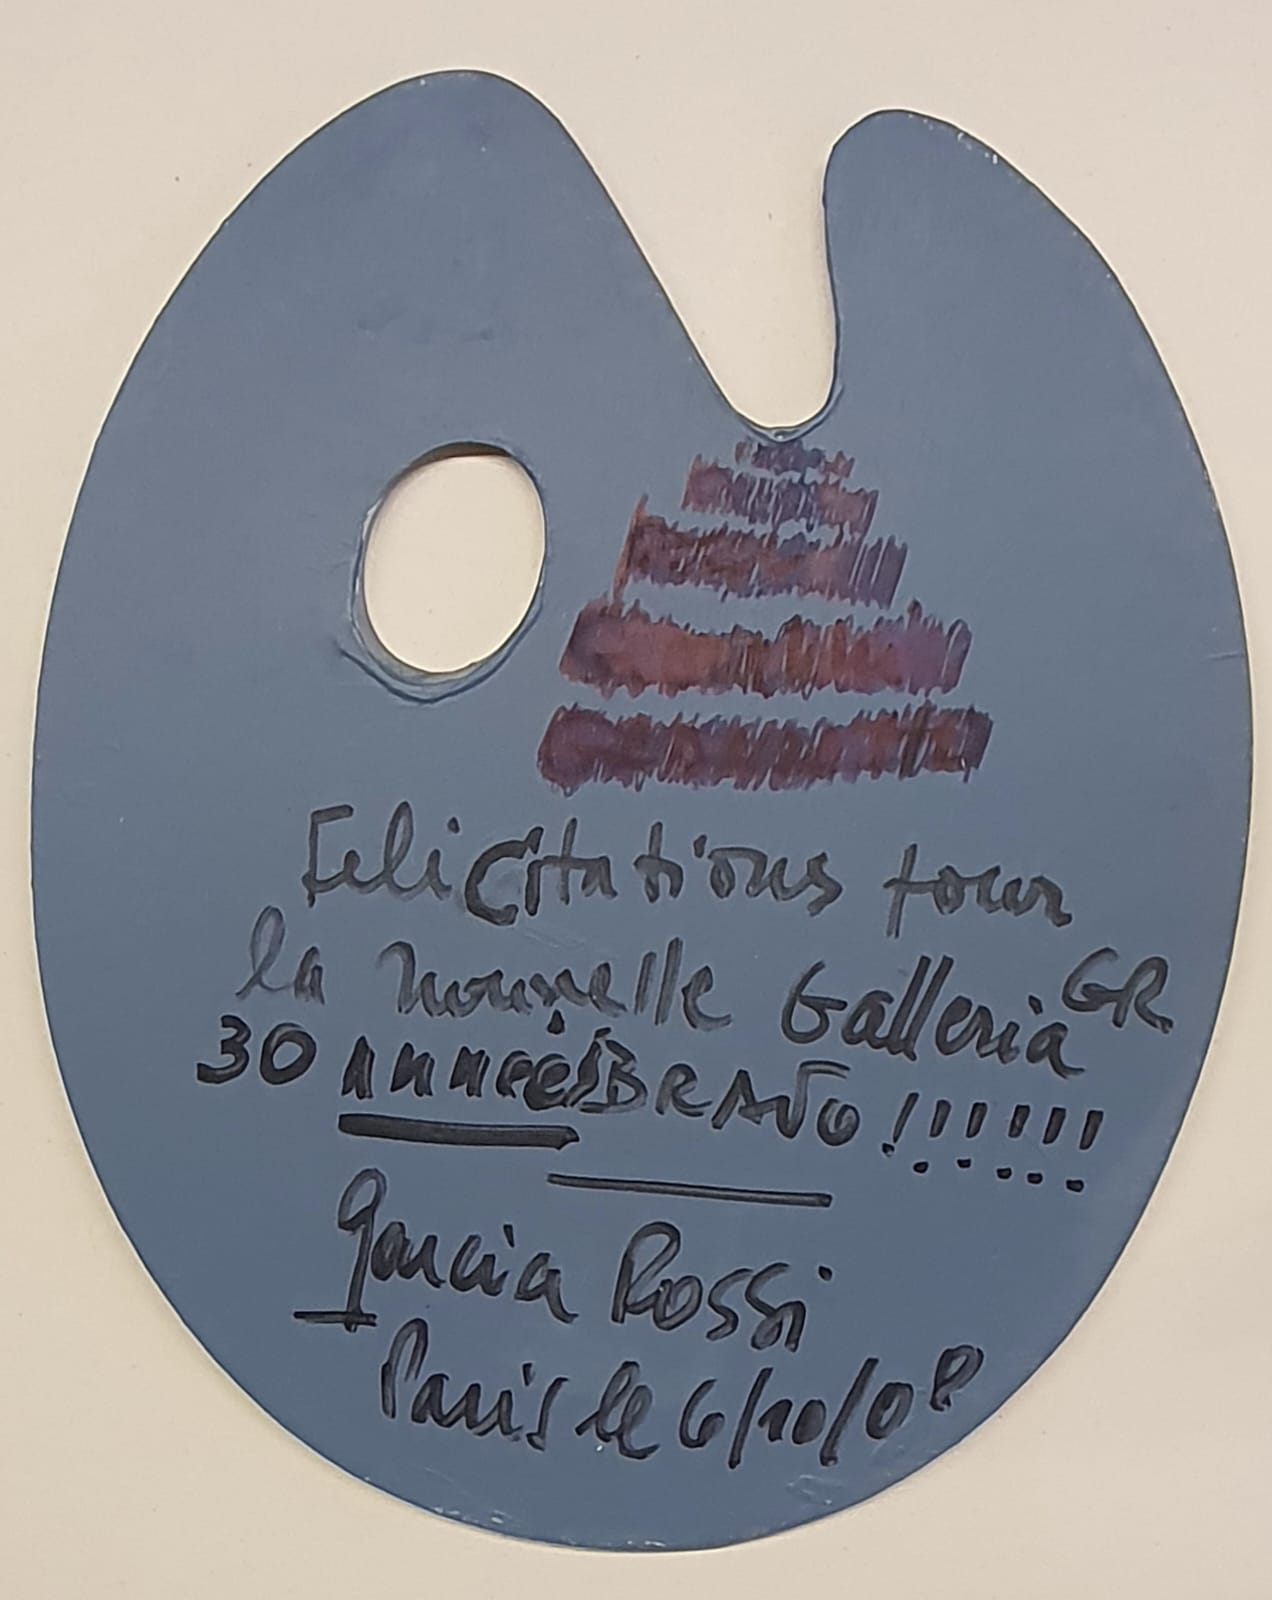 Felicitations pour
la nouvelle Galleria GR
30 annees BRAVO !!!!!!
Garcia Rossi
Paris le 6/10/08